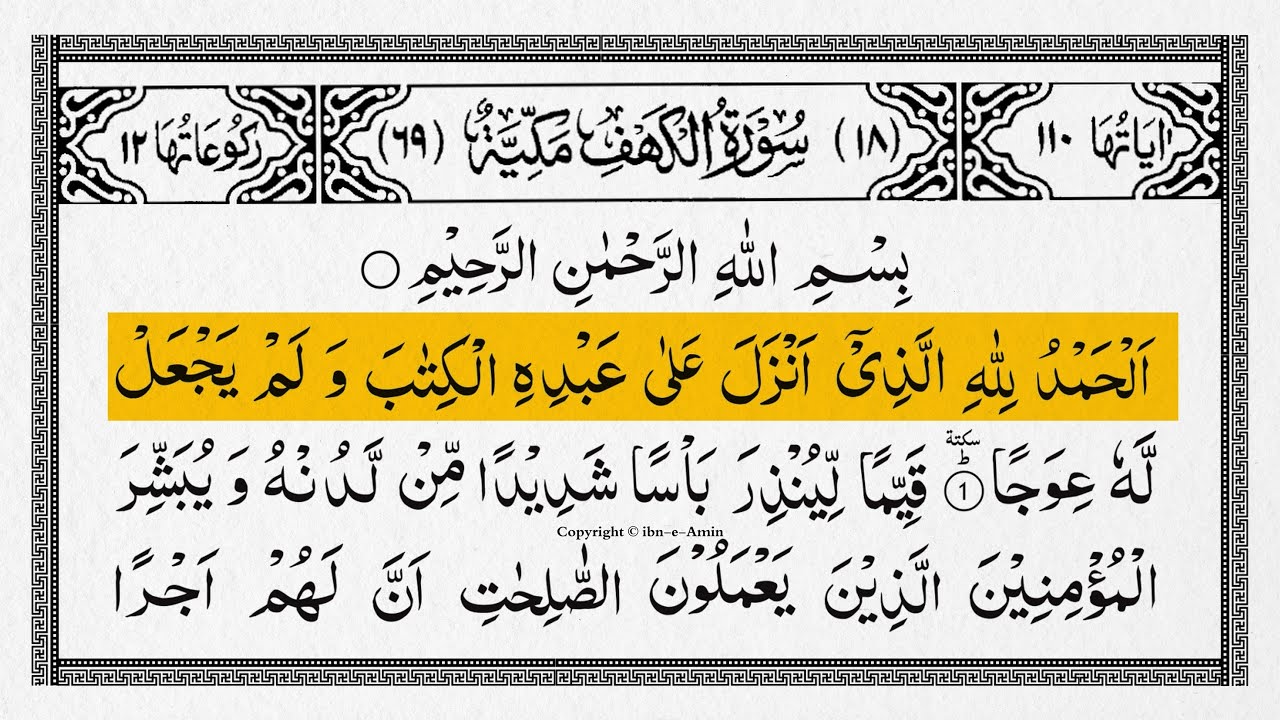 اٰيَاتُهَا ١١٠ (١٨) سُوْرَةُ الْكَهْفِ مَكِّيَّةٌ (٦٩) رُكُوْعَاتُهَا ١٢
بِسْمِ اللهِ الرَّحْمٰنِ الرَّحِيْمِ ○
اَلْحَمْدُ لِلّٰهِ الَّذِىْۤ اَنْزَلَ عَلٰى عَبْدِهِ الْكِتٰبَ وَ لَمْ يَجْعَلْ
لَّهٗ عِوَجًاؕ سكتة ① قَيِّمًا لِّيُنْذِرَ بَاْسًا شَدِيْدًا مِّنْ لَّدُنْهُ وَ يُبَشِّرَ
Copyright © ibn-e-Amin
الْمُؤْمِنِيْنَ الَّذِيْنَ يَعْمَلُوْنَ الصّٰلِحٰتِ اَنَّ لَهُمْ اَجْرًا